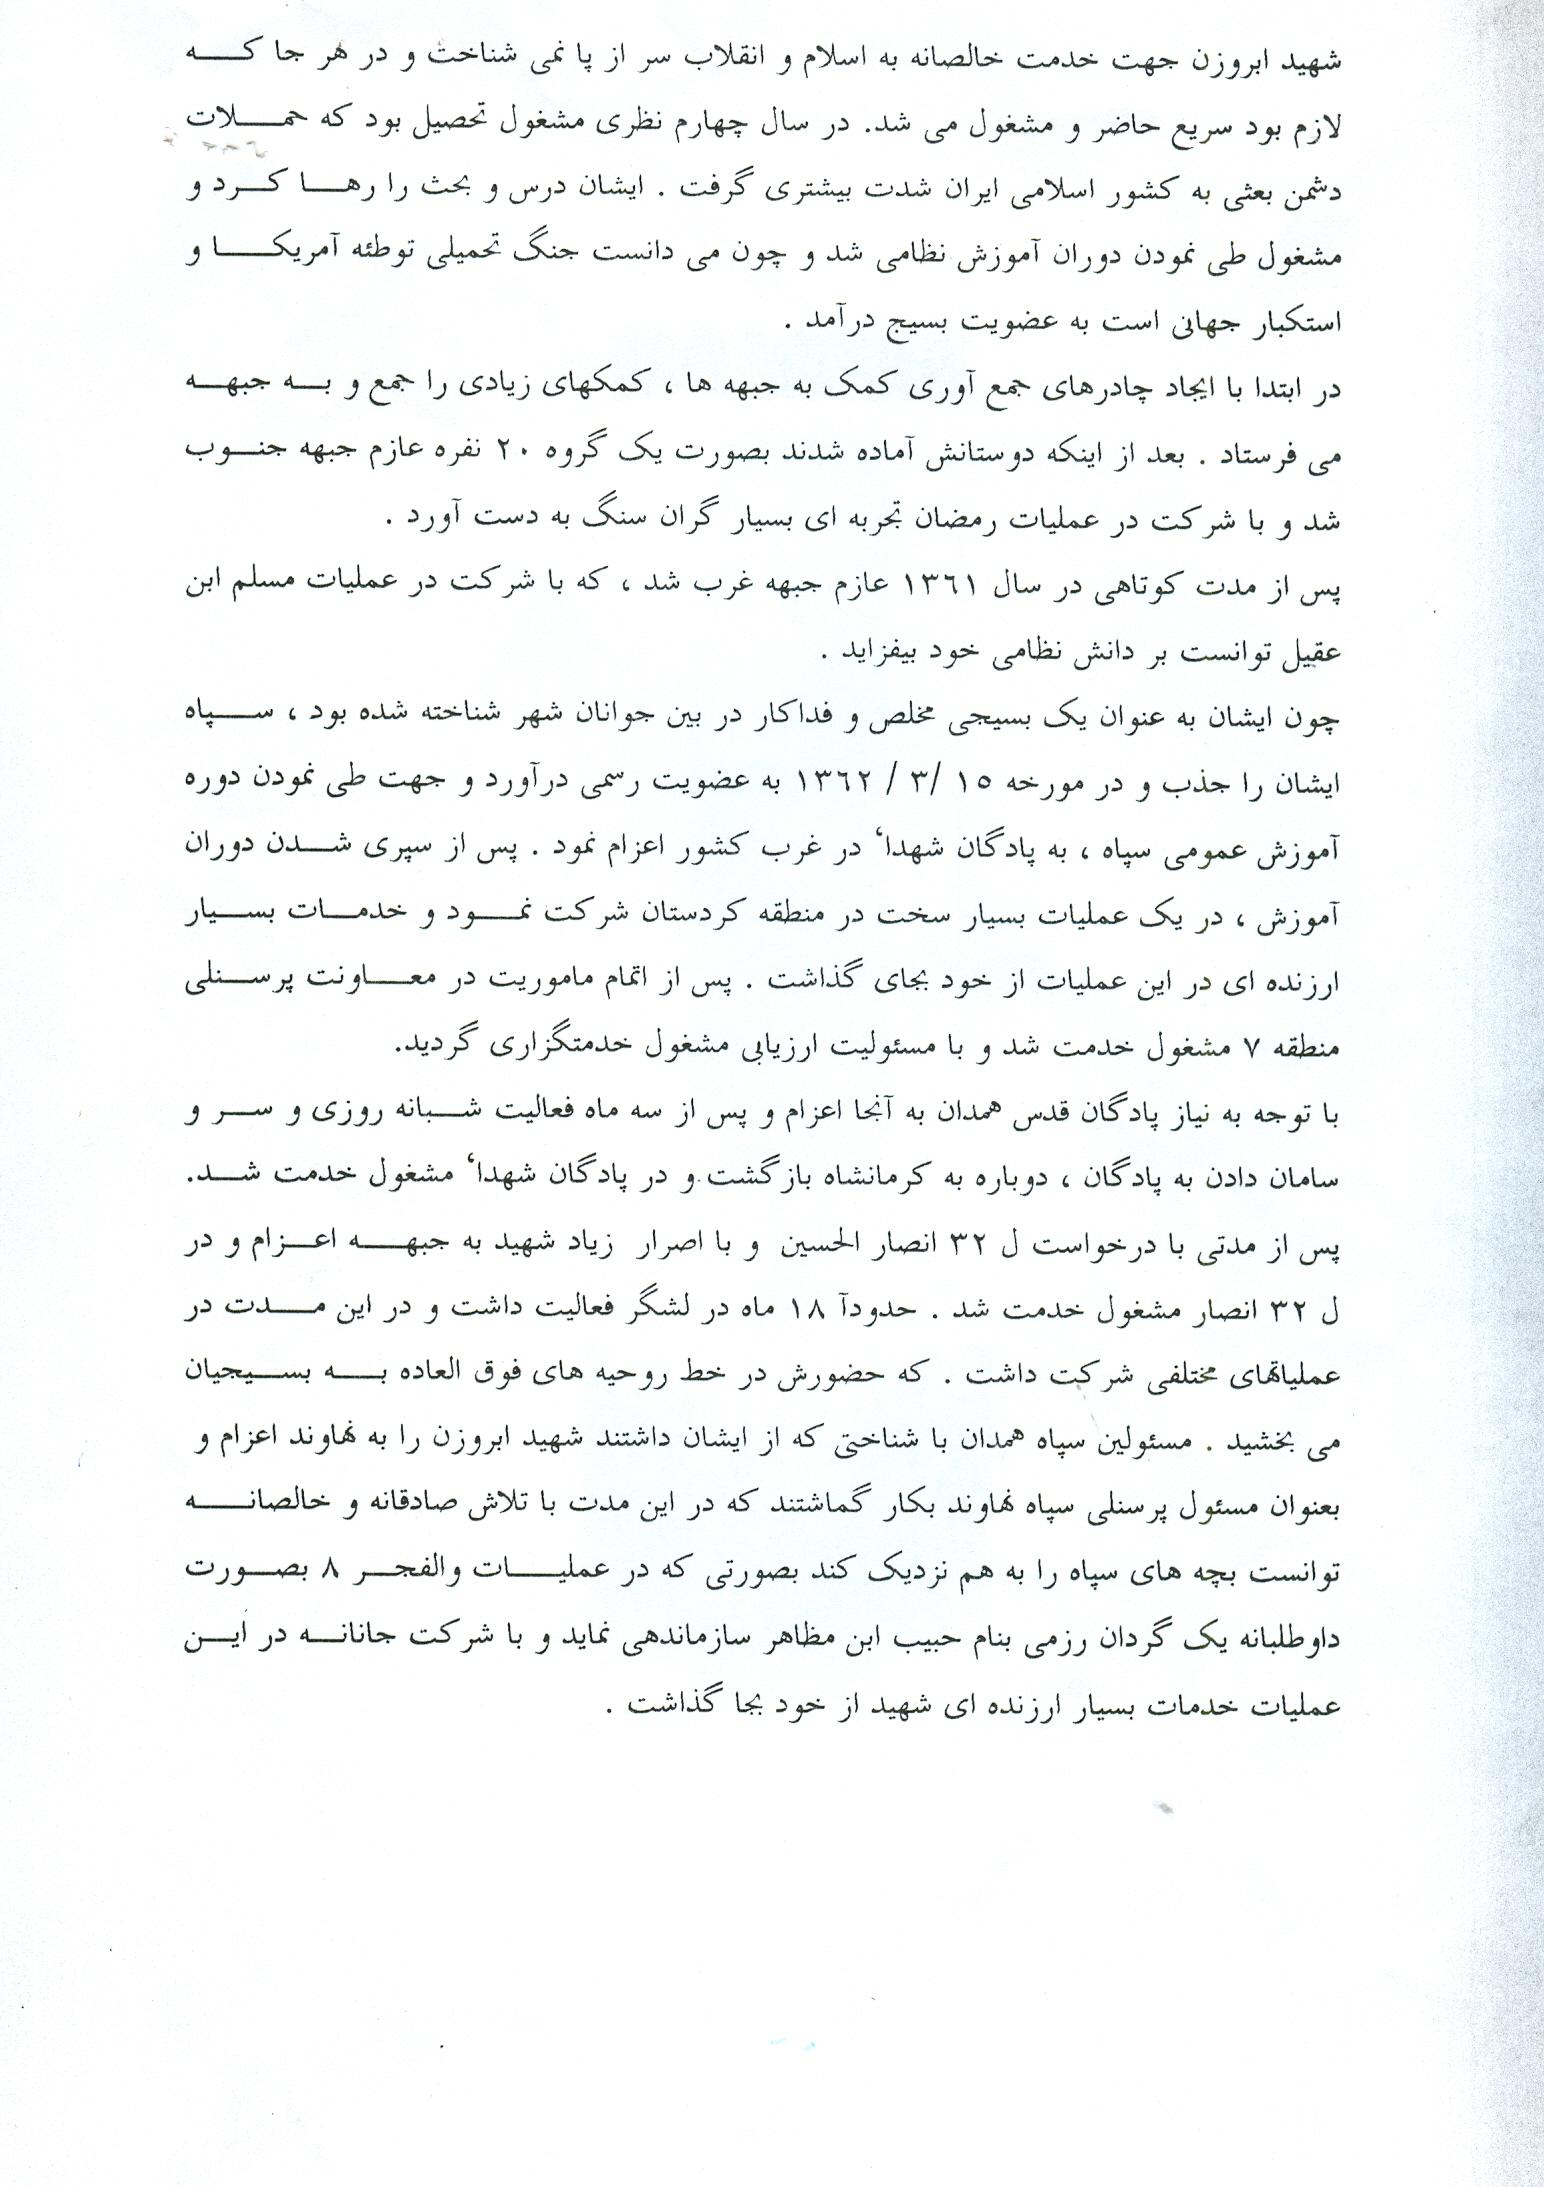 شهید ابروزن جهت خدمت خالصانه به اسلام و انقلاب سر از پا نمی شناخت و در هر جا که
لازم بود سریع حاضر و مشغول می شد. در سال چهارم نظری مشغول تحصیل بود که حملات
دشمن بعثی به کشور اسلامی ایران شدت بیشتری گرفت . ایشان درس و بحث را رها کرد و
مشغول طی نمودن دوران آموزش نظامی شد و چون می دانست جنگ تحمیلی توطئه آمریکا و
استکبار جهانی است به عضویت بسیج درآمد .
در ابتدا با ایجاد چادرهای جمع آوری کمک به جبهه ها ، کمکهای زیادی را جمع و به جبهه
می فرستاد . بعد از اینکه دوستانش آماده شدند بصورت یک گروه ۲۰ نفره عازم جبهه جنوب
شد و با شرکت در عملیات رمضان تجربه ای بسیار گران سنگ به دست آورد .
پس از مدت کوتاهی در سال ۱۳۶۱ عازم جبهه غرب شد ، که با شرکت در عملیات مسلم ابن
عقیل توانست بر دانش نظامی خود بیفزاید .
چون ایشان به عنوان یک بسیجی مخلص و فداکار در بین جوانان شهر شناخته شده بود ، سپاه
ایشان را جذب و در مورخه ۱۵ /۳ / ۱۳۶۲ به عضویت رسمی درآورد و جهت طی نمودن دوره
آموزش عمومی سپاه ، به پادگان شهداء در غرب کشور اعزام نمود . پس از سپری شدن دوران
آموزش ، در یک عملیات بسیار سخت در منطقه کردستان شرکت نمود و خدمات بسیار
ارزنده ای در این عملیات از خود بجای گذاشت . پس از اتمام ماموریت در معاونت پرسنلی
منطقه ۷ مشغول خدمت شد و با مسئولیت ارزیابی مشغول خدمتگزاری گردید.
با توجه به نیاز پادگان قدس همدان به آنجا اعزام و پس از سه ماه فعالیت شبانه روزی و سر و
سامان دادن به پادگان ، دوباره به کرمانشاه بازگشت و در پادگان شهداء مشغول خدمت شد.
پس از مدتی با درخواست ل ۳۲ انصار الحسین و با اصرار زیاد شهید به جبهه اعزام و در
ل ۳۲ انصار مشغول خدمت شد . حدودآ ۱۸ ماه در لشگر فعالیت داشت و در این مدت در
عملیاتهای مختلفی شرکت داشت . که حضورش در خط روحیه های فوق العاده به بسیجیان
می بخشید . مسئولین سپاه همدان با شناختی که از ایشان داشتند شهید ابروزن را به نهاوند اعزام و
بعنوان مسئول پرسنلی سپاه نهاوند بکار گماشتند که در این مدت با تلاش صادقانه و خالصانه
توانست بچه های سپاه را به هم نزدیک کند بصورتی که در عملیات والفجر ۸ بصورت
داوطلبانه یک گردان رزمی بنام حبیب ابن مظاهر سازماندهی نماید و با شرکت جانانه در این
عملیات خدمات بسیار ارزنده ای شهید از خود بجا گذاشت .